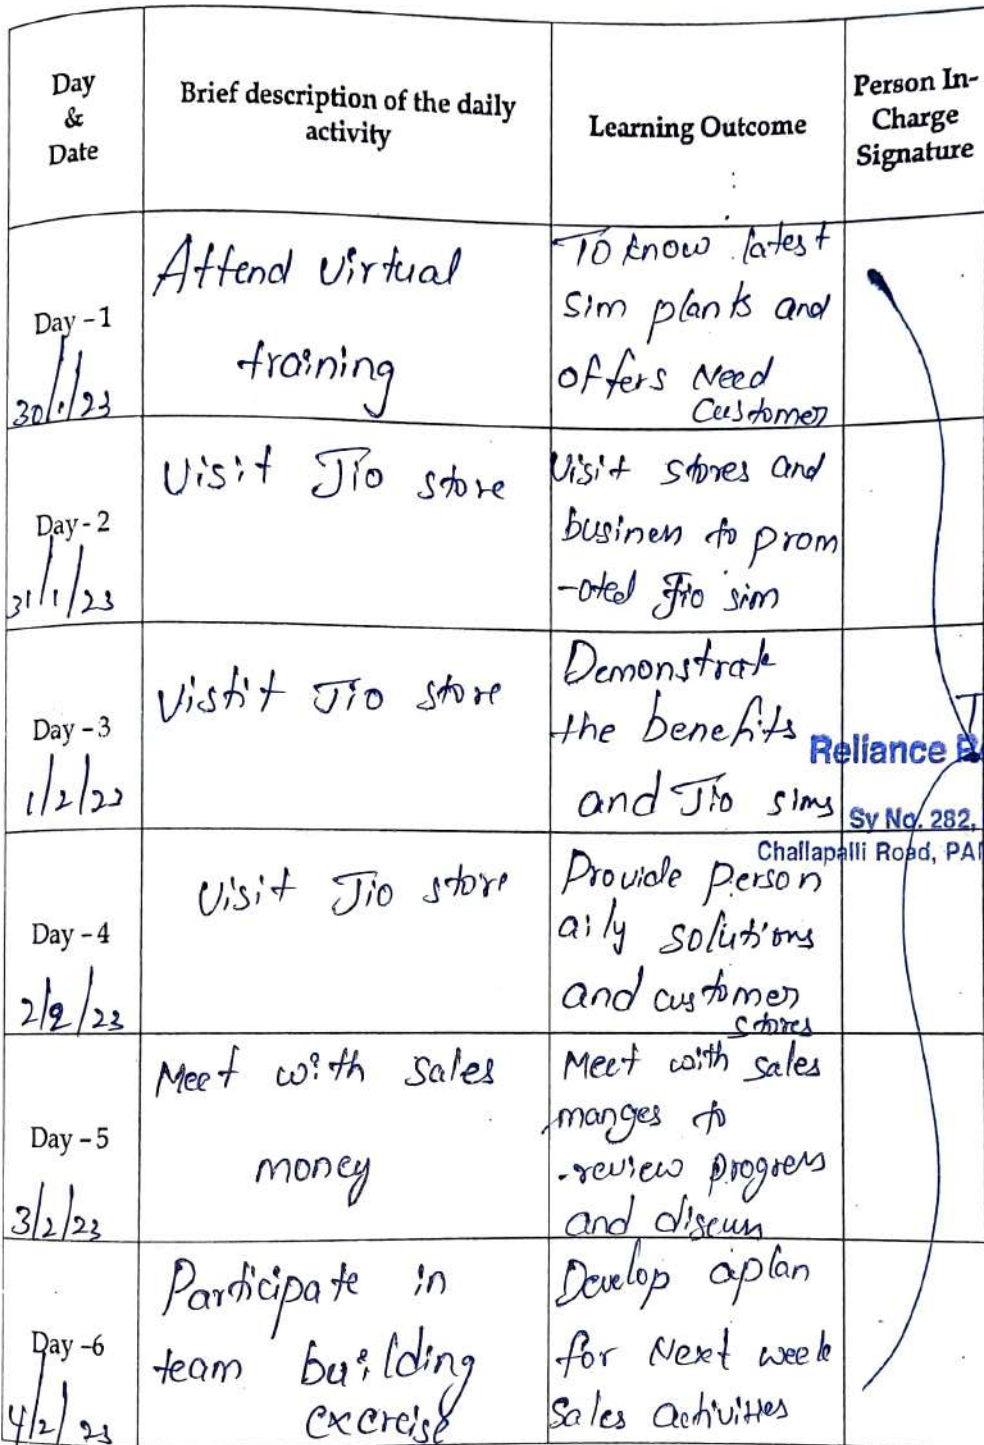 Day
&
Date
Brief description of the daily
activity
Learning Outcome
Person In-
Charge
Signature
Day - 1
30/1/23
Attend virtual
training
To know latest
sim plants and
offers Need
Customer
Day - 2
31/1/23
Visit Jio store
Visit stores and
business to prom
-oted Jio sim
Day - 3
1/2/23
Vistit Jio store
Demonstrate
the benefits
and Jio sims
Reliance
Sy No. 282,
Challapalli Road, PA
Day - 4
2/2/23
Visit Jio store
Provide person
aily solutions
and customer
stores
Day - 5
3/2/23
Meet with sales
money
Meet with sales
manges to
-review progress
and discuss
Day - 6
4/2/23
Participate in
team building
exercise
Develop aplan
for Next week
Sales activities